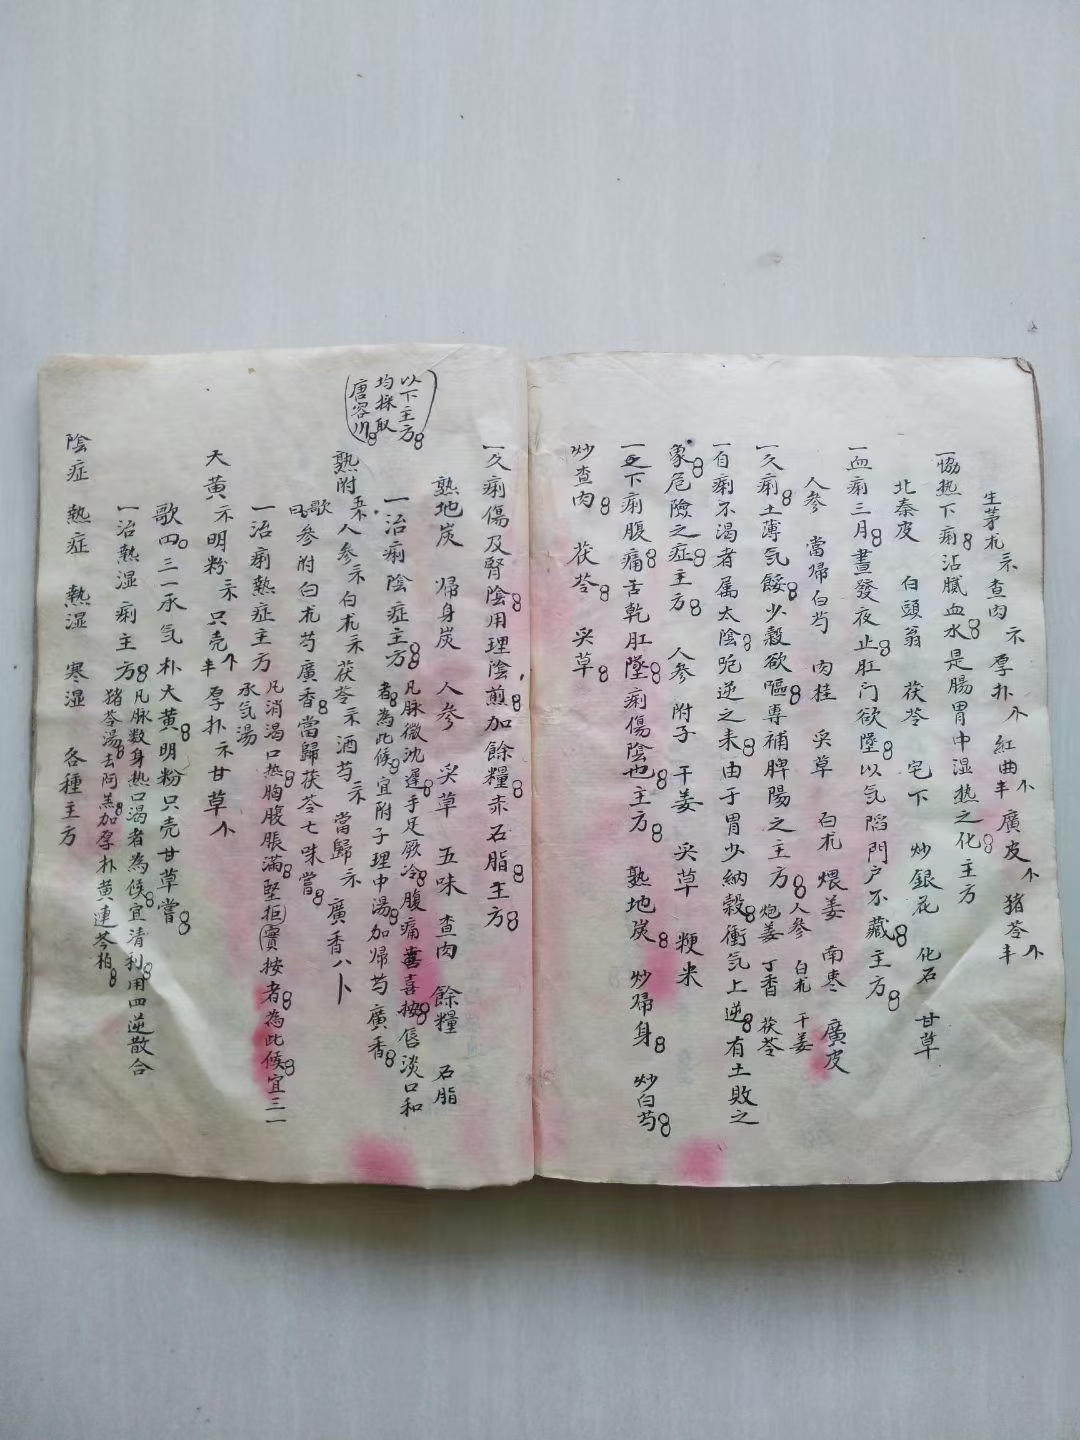 生茅朮 查肉 厚朴 紅曲 廣皮 猪苓
一協热下痢沾腻血水是腸胃中湿热之化主方
北秦皮 白頭翁 茯苓 宅下 炒銀花 化石 甘草
一血痢三月晝發夜止肛门欲墜以気陷門户不藏主方
人參 當帰白芍 肉桂 炙草 白朮 煨姜 南枣 廣皮
一久痢土薄気餒少穀欲嘔專補脾陽之主方 人參 白朮 干姜
炮姜 丁香 茯苓
一自痢不渴者属太陰呃逆之来由于胃少納穀衝気上逆有土敗之
象危險之症主方 人參 附子 干姜 炙草 粳米
一下痢腹痛舌乾肛墜痢傷陰也主方 熟地炭 炒帰身 炒白芍
炒查肉 茯苓 炙草
以下主方
均採取
唐容川
一久痢傷及腎陰用理陰煎加餘糧赤石脂主方
熟地炭 帰身炭 人參 炙草 五味 查肉 餘糧 石脂
一治痢陰症主方 凡脉微沈遲手足厥冷腹痛喜按唇淡口和
者為此候宜附子理中湯加帰芍廣香
熟附 人參 白朮 茯苓 酒芍 當歸 廣香
歌曰 參附白朮芍廣香當歸茯苓七味嘗
一治痢熱症主方 凡消渴口热胸腹脹滿堅拒(實)按者為此候宜三一
承気湯
大黄 明粉 只壳 厚朴 甘草
歌四 三一承気朴大黄明粉只壳甘草嘗
一治熱湿痢主方 凡脉数身热口渴者為候宜清利用四逆散合
猪苓湯去阿羔加厚朴黄連芩柏
陰症 熱症 熱湿 寒湿 各種主方